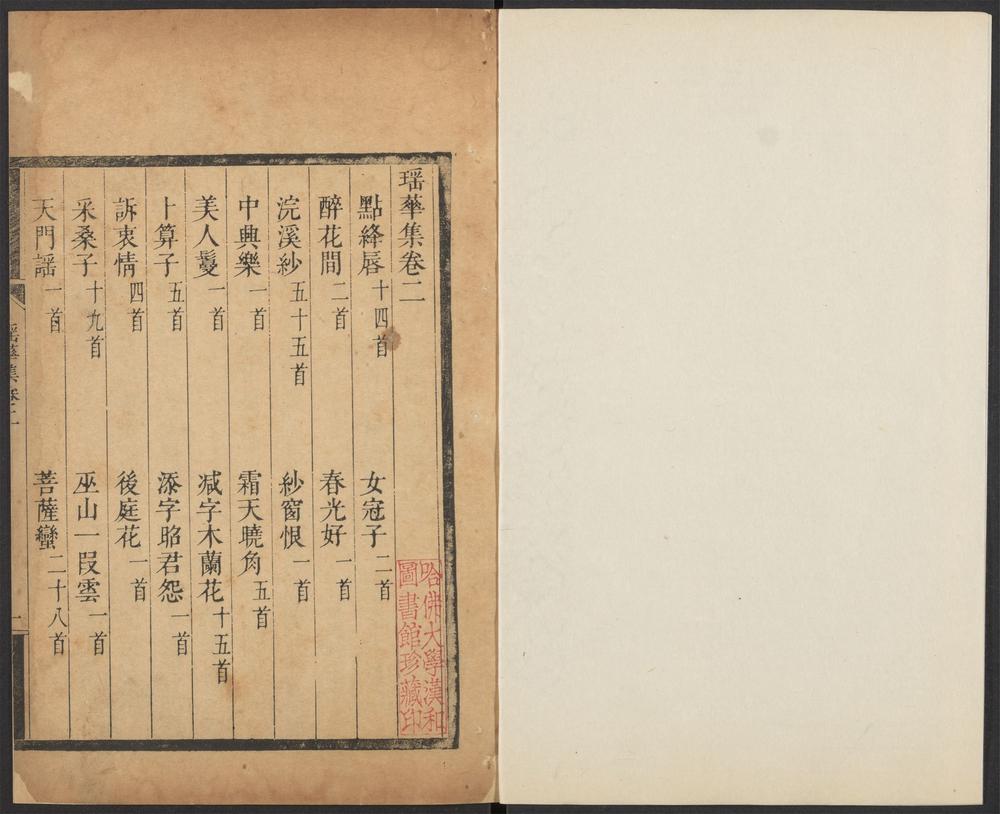 瑶華集卷二
點絳唇十四首　女冠子二首
醉花間二首　春光好一首
浣溪紗五十五首　紗窗恨一首
中興樂一首　霜天曉角五首
美人鬘一首　减字木蘭花十五首
卜算子五首　添字昭君怨一首
訴衷情四首　後庭花一首
采桑子十九首　巫山一段雲一首
天門謡一首　菩薩蠻二十八首
瑶華集卷二
一
哈佛大學漢和
圖書館珍藏印